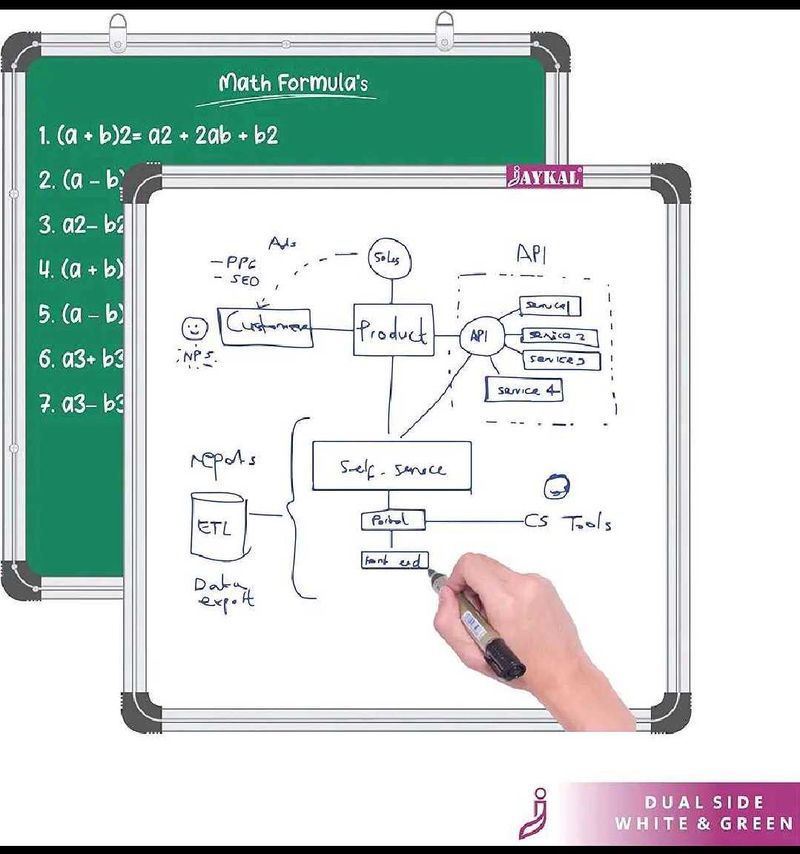 Math Formula's
1. (a + b)2= a2 + 2ab + b2
2. (a – b)
3. a2– b2
4. (a + b)
5. (a – b)
6. a3+ b3
7. a3– b3
JAYKAL®
Ads
– PPC
- SEO
Sales
API
Customer
Product
API
Service 1
Service 2
Service 3
Service 4
NPS
reports
Self-service
ETL
Portal
CS Tools
front end
Data
export
DUAL SIDE
WHITE & GREEN